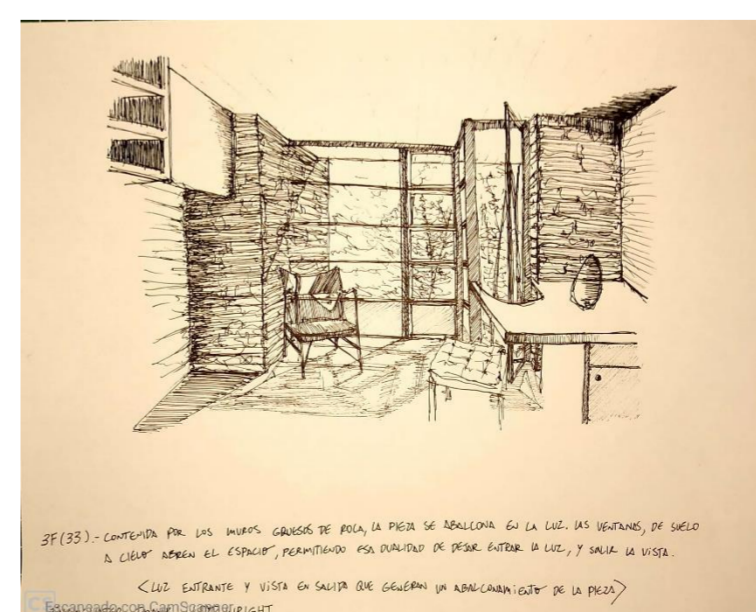 3F(33).- CONTENIDA POR LOS MUROS GRUESOS DE ROCA, LA PIEZA SE ABALCONA EN LA LUZ. LAS VENTANAS, DE SUELO
A CIELO ABREN EL ESPACIO, PERMITIENDO ESA DUALIDAD DE DEJAR ENTRAR LA LUZ, Y SALIR LA VISTA.
<LUZ ENTRANTE Y VISTA EN SALIDA QUE GENERAN UN ABALCONAMIENTO DE LA PIEZA>
CS Escaneado con CamScanner